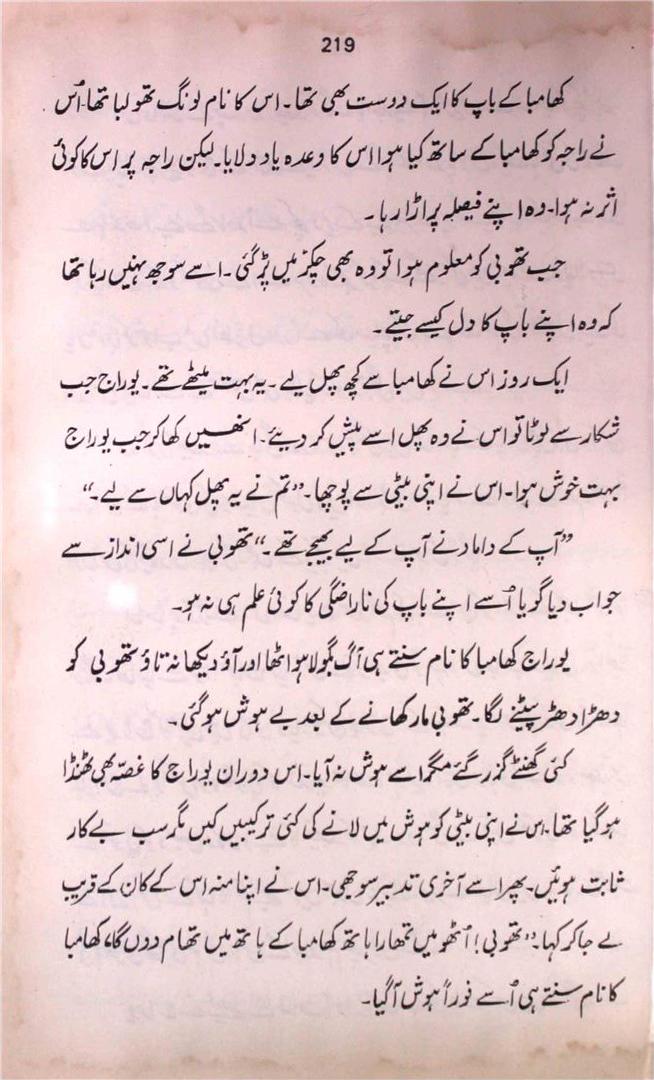 219
کھامبا کے باپ کا ایک دوست بھی تھا۔ اس کا نام لونگ تھولبا تھا۔ اُس
نے راجہ کو کھامبا کے ساتھ کیا ہوا اس کا وعدہ یاد دلایا۔ لیکن راجہ پر اس کا کوئی
اثر نہ ہوا۔ وہ اپنے فیصلہ پر اڑا رہا۔
جب تھوبی کو معلوم ہوا تو وہ بھی چکّر میں پڑ گئی۔ اسے سوجھ نہیں رہا تھا
کہ وہ اپنے باپ کا دل کیسے جیتے۔
ایک روز اس نے کھامبا سے کچھ پھل لیے۔ یہ بہت میٹھے تھے۔ یوراج جب
شکار سے لوٹا تو اس نے وہ پھل اسے پیش کر دیئے۔ انھیں کھا کر جب یوراج
بہت خوش ہوا۔ اس نے اپنی بیٹی سے پوچھا۔ ”تم نے یہ پھل کہاں سے لیے۔“
”آپ کے داماد نے آپ کے لیے بھیجے تھے۔“ تھوبی نے اسی انداز سے
جواب دیا گویا اُسے اپنے باپ کی ناراضگی کا کوئی علم ہی نہ ہو۔
یوراج کھامبا کا نام سنتے ہی آگ بگولا ہو اٹھا اور آؤ دیکھا نہ تاؤ تھوبی کو
دھڑا دھڑ پیٹنے لگا۔ تھوبی مار کھانے کے بعد بے ہوش ہو گئی۔
کئی گھنٹے گزر گئے مگر اسے ہوش نہ آیا۔ اس دوران یوراج کا غصّہ بھی ٹھنڈا
ہو گیا تھا۔ اس نے اپنی بیٹی کو ہوش میں لانے کی کئی ترکیبیں کیں مگر سب بے کار
ثابت ہوئیں۔ پھر اسے آخری تدبیر سوجھی۔ اس نے اپنا منہ اس کے کان کے قریب
لے جا کر کہا۔ ”تھوبی! اُٹھو میں تمھارا ہاتھ کھامبا کے ہاتھ میں تھام دوں گا، کھامبا
کا نام سنتے ہی اُسے فوراً ہوش آ گیا۔